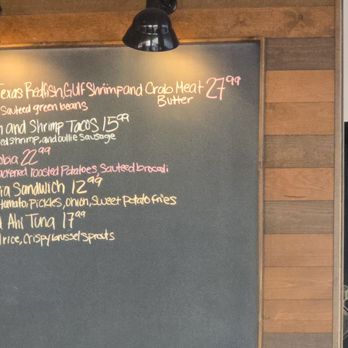 Texas Redfish, Gulf Shrimp and Crab Meat 27.99
Butter
Sauteed green beans
and Shrimp Tacos 15.99
shrimp, and
sausage
22.99
Roasted Potatoes, Sauteed brocoli
Sandwich 12.99
tomato, pickles, onion, sweet potato fries
Ahi Tuna 17.99
rice, crispy brussel sprouts